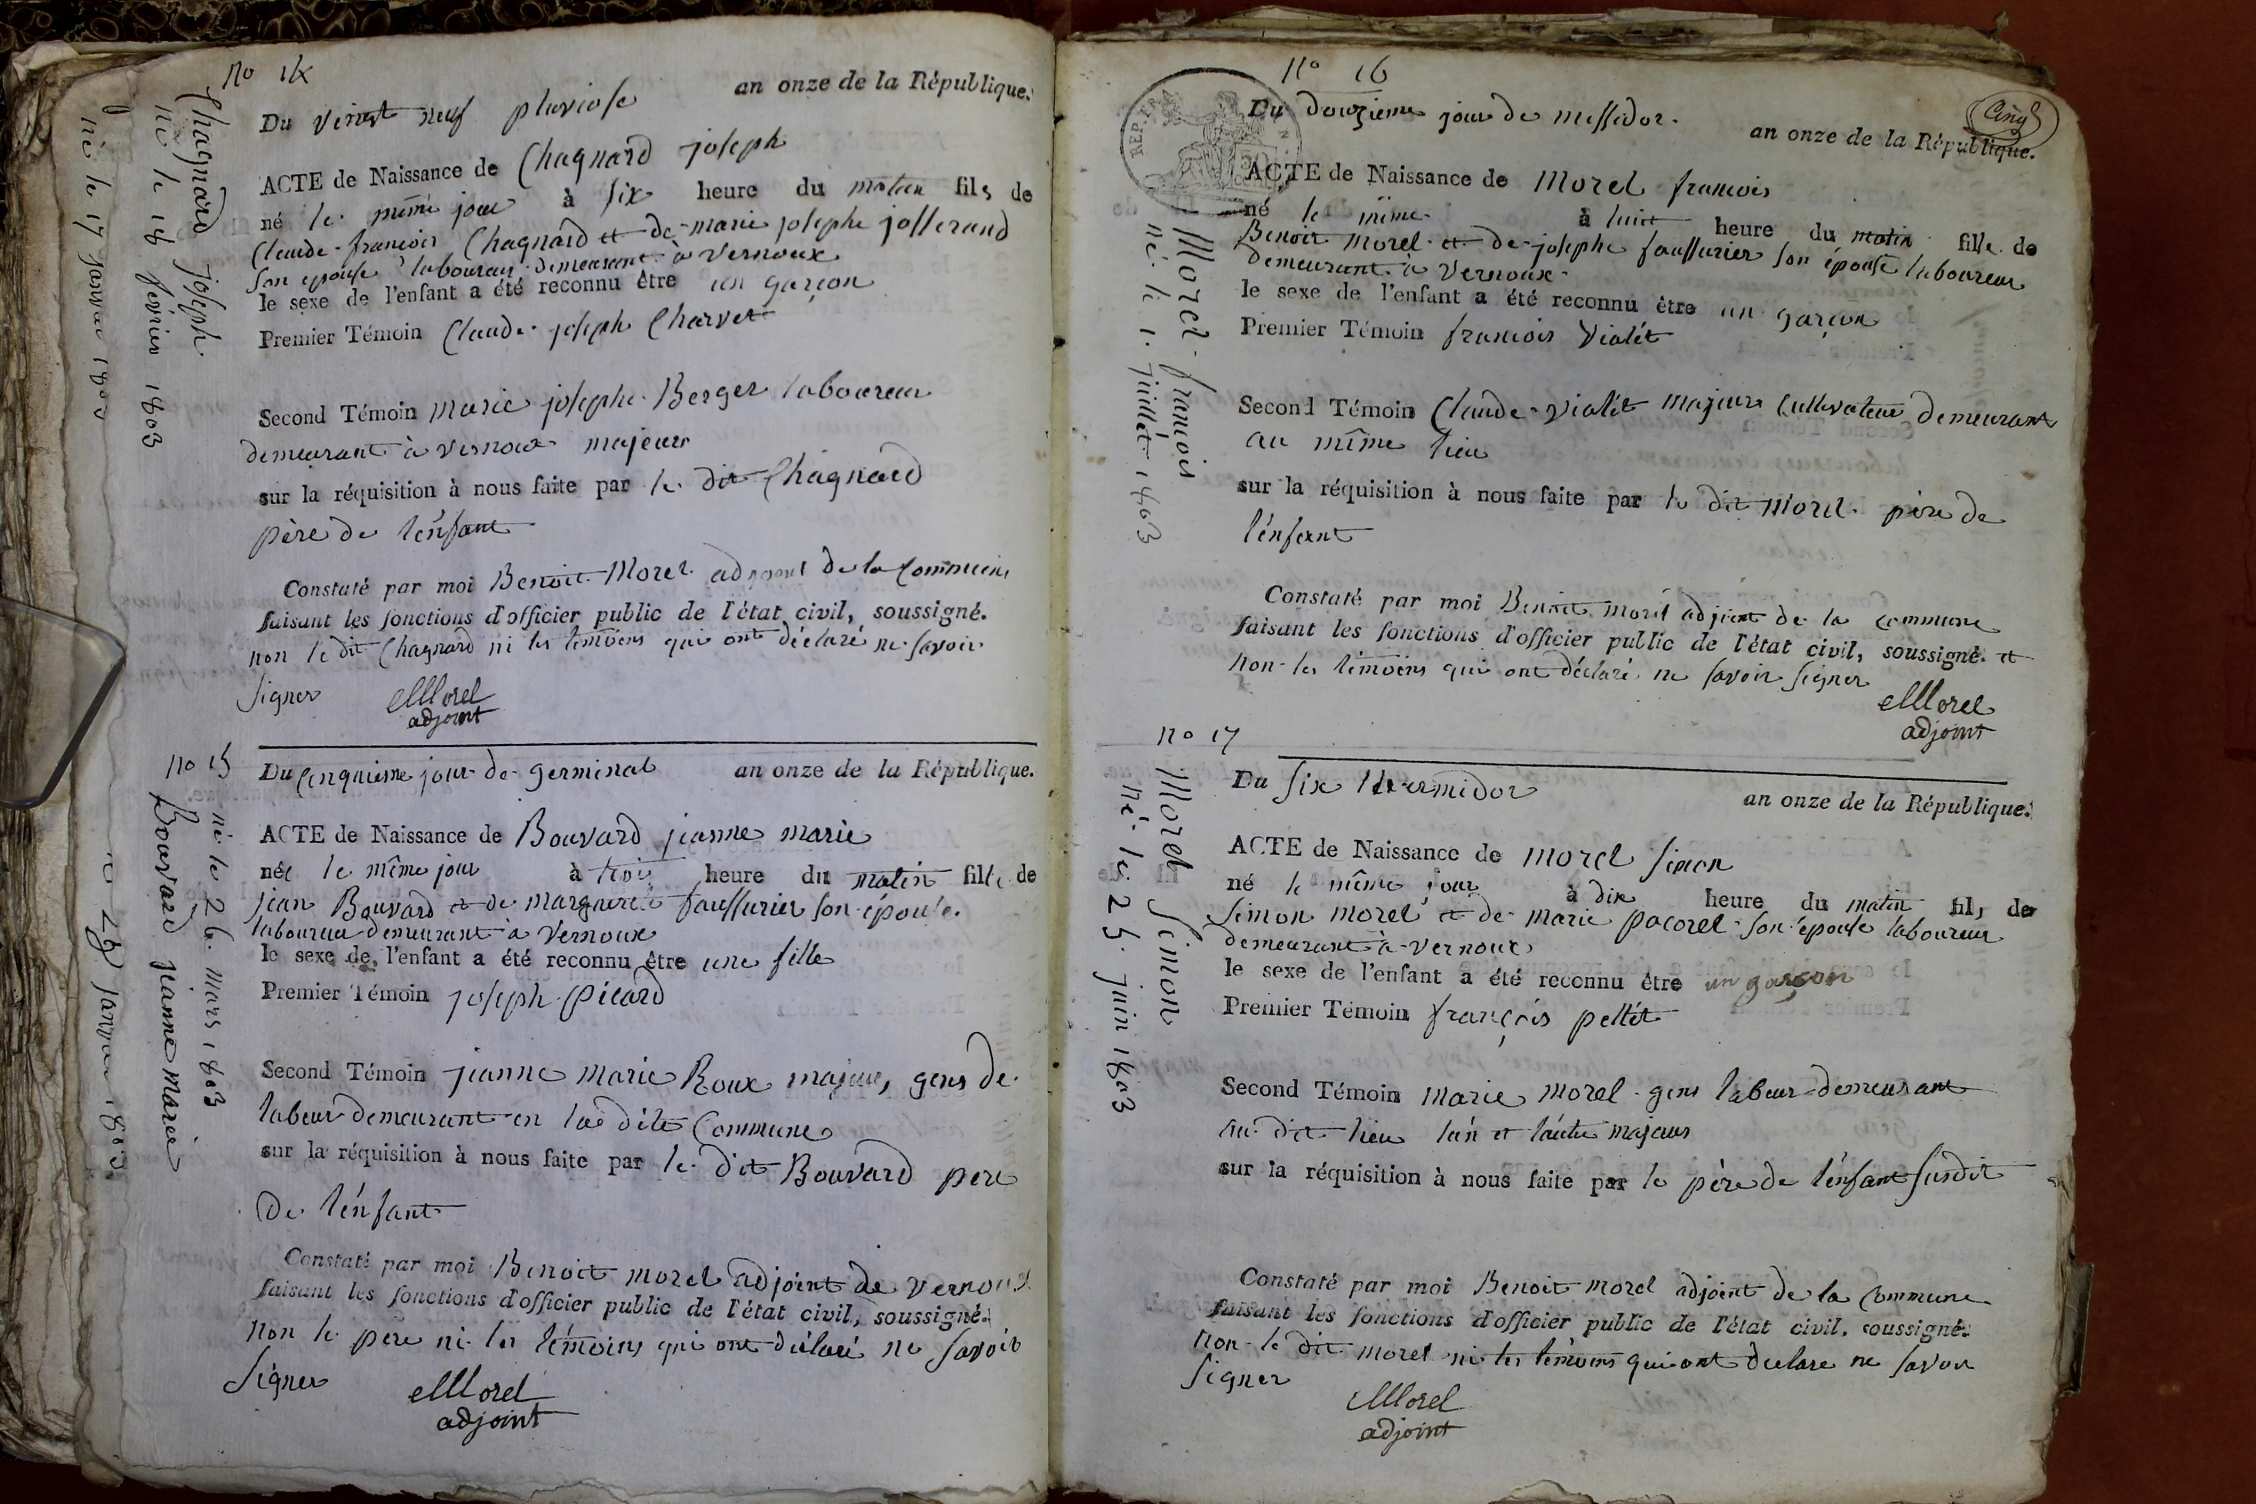 no 14
Du vinst neuf pluviose an onze de la République.
ACTE de Naissance de Chagnard joseph
né le même jour à six heure du matin fils de
Claude françois Chagnard et de marie josephe josserand
son epouse laboureur demeurant à Vernoux
le sexe de l'enfant a été reconnu être un garçon
Premier Témoin Claude joseph Charvet
Second Témoin marie josephe Berger laboureur
demeurant à vernoux majeurs
sur la réquisition à nous faite par le dit Chagnard
père de l'énfant
Constaté par moi Benoit Morel adjoint de la Commune
faisant les fonctions d'officier public de l'état civil, soussigné.
non le dit Chagnard ni les témoins qui ont déclaré ne savoir
signer
Morel
adjoint
Chagnard joseph
né le 18 février 1803
né le 17 janvier 1803
no 15
Du Cinquieme jour de germinal an onze de la République.
ACTE de Naissance de Bouvard jeanne marie
née le même jour à trois heure du matin fille de
jean Bouvard et de marguerite faussurier son épouse
laboureur demeurant à Vernoux
le sexe de l'enfant a été reconnu être une fille
Premier Témoin joseph picard
Second Témoin jeanne marie Roux majeurs, gens de
labeur demeurant en la dite Commune
sur la réquisition à nous faite par le dit Bouvard pere
de l'énfant
Constaté par moi Benoit morel adjoint de vernoux
faisant les fonctions d'officier public de l'état civil, soussigné.
non le pere ni les témoins qui ont déclaré ne savoir
signer
Morel
adjoint
né le 26 mars 1803
Bouvard jeanne marie
janvier 1803
no 16
Cinq
REP. FRA
Du douzieme jour de messidor. an onze de la République.
ACTE de Naissance de Morel francois
né le même à huit heure du matin fille de
Benoit Morel et de josephe faussurier son épouse laboureur
demeurant à vernoux
le sexe de l'enfant a été reconnu être un garçon
Premier Témoin francois Violét
Second Témoin Claude violét majeurs Cultivateur demeurant
au même lieu
sur la réquisition à nous faite par le dit Morel père de
l'énfant
Constaté par moi Benoit morel adjoint de la commune
faisant les fonctions d'officier public de l'état civil, soussigné. et
non les témoins qui ont déclaré ne savoir signer
Morel
adjoint
Morel francois
né le 1. juillet 1803
no 17
Du six thermidor an onze de la République.
ACTE de Naissance de morel simon
né le même jour à dix heure du matin fils de
simon morel et de marie pocorel son épouse laboureur
demeurant à vernoux
le sexe de l'enfant a été reconnu être un garçon
Premier Témoin françois pellét
Second Témoin marie morel gens labeur demeurant
au dit lieu l'un et l'autre majeurs
sur la réquisition à nous faite par le père de l'énfant susdit
Constaté par moi Benoit morel adjoint de la Commune
faisant les fonctions d'officier public de l'état civil. soussigné.
non le dit morel ni les témoins qui ont declare ne savoir
signer
Morel
adjoint
Morel simon
né le 25 juin 1803